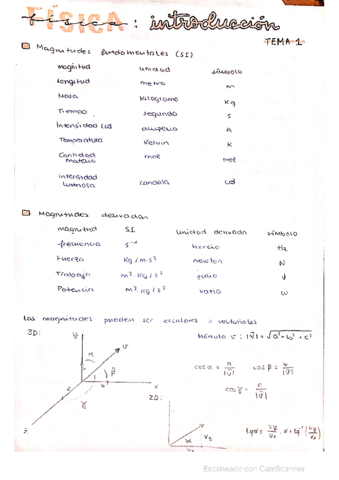 Física: introducción
TEMA 1
Magnitudes fundamentales (SI)
Magnitud unidad símbolo
Longitud metro m
Masa Kilogramo Kg
Tiempo segundo s
Intensidad (cd) amperio A
Temperatura Kelvin K
Cantidad materia mol mol
Intensidad luminosa candela cd
Magnitudes derivadas
magnitud SI unidad derivada símbolo
frecuencia s⁻¹ hercio Hz
Fuerza Kg/m·s² newton N
Trabajo m²·Kg/s² julio J
Potencia m²·Kg/s³ vatio W
Las magnitudes pueden ser escalares o vectoriales
3D:
Módulo v: |V| = √a²+b²+c²
cos α = a/|V| cos β = b/|V|
cos γ = c/|V|
2D:
tg α = Vy/Vx, α = tg⁻¹(Vy/Vx)
Escaneado con CamScanner